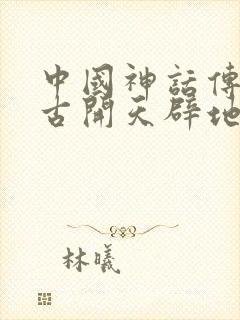 中國神話傳
古開天辟地
林曦